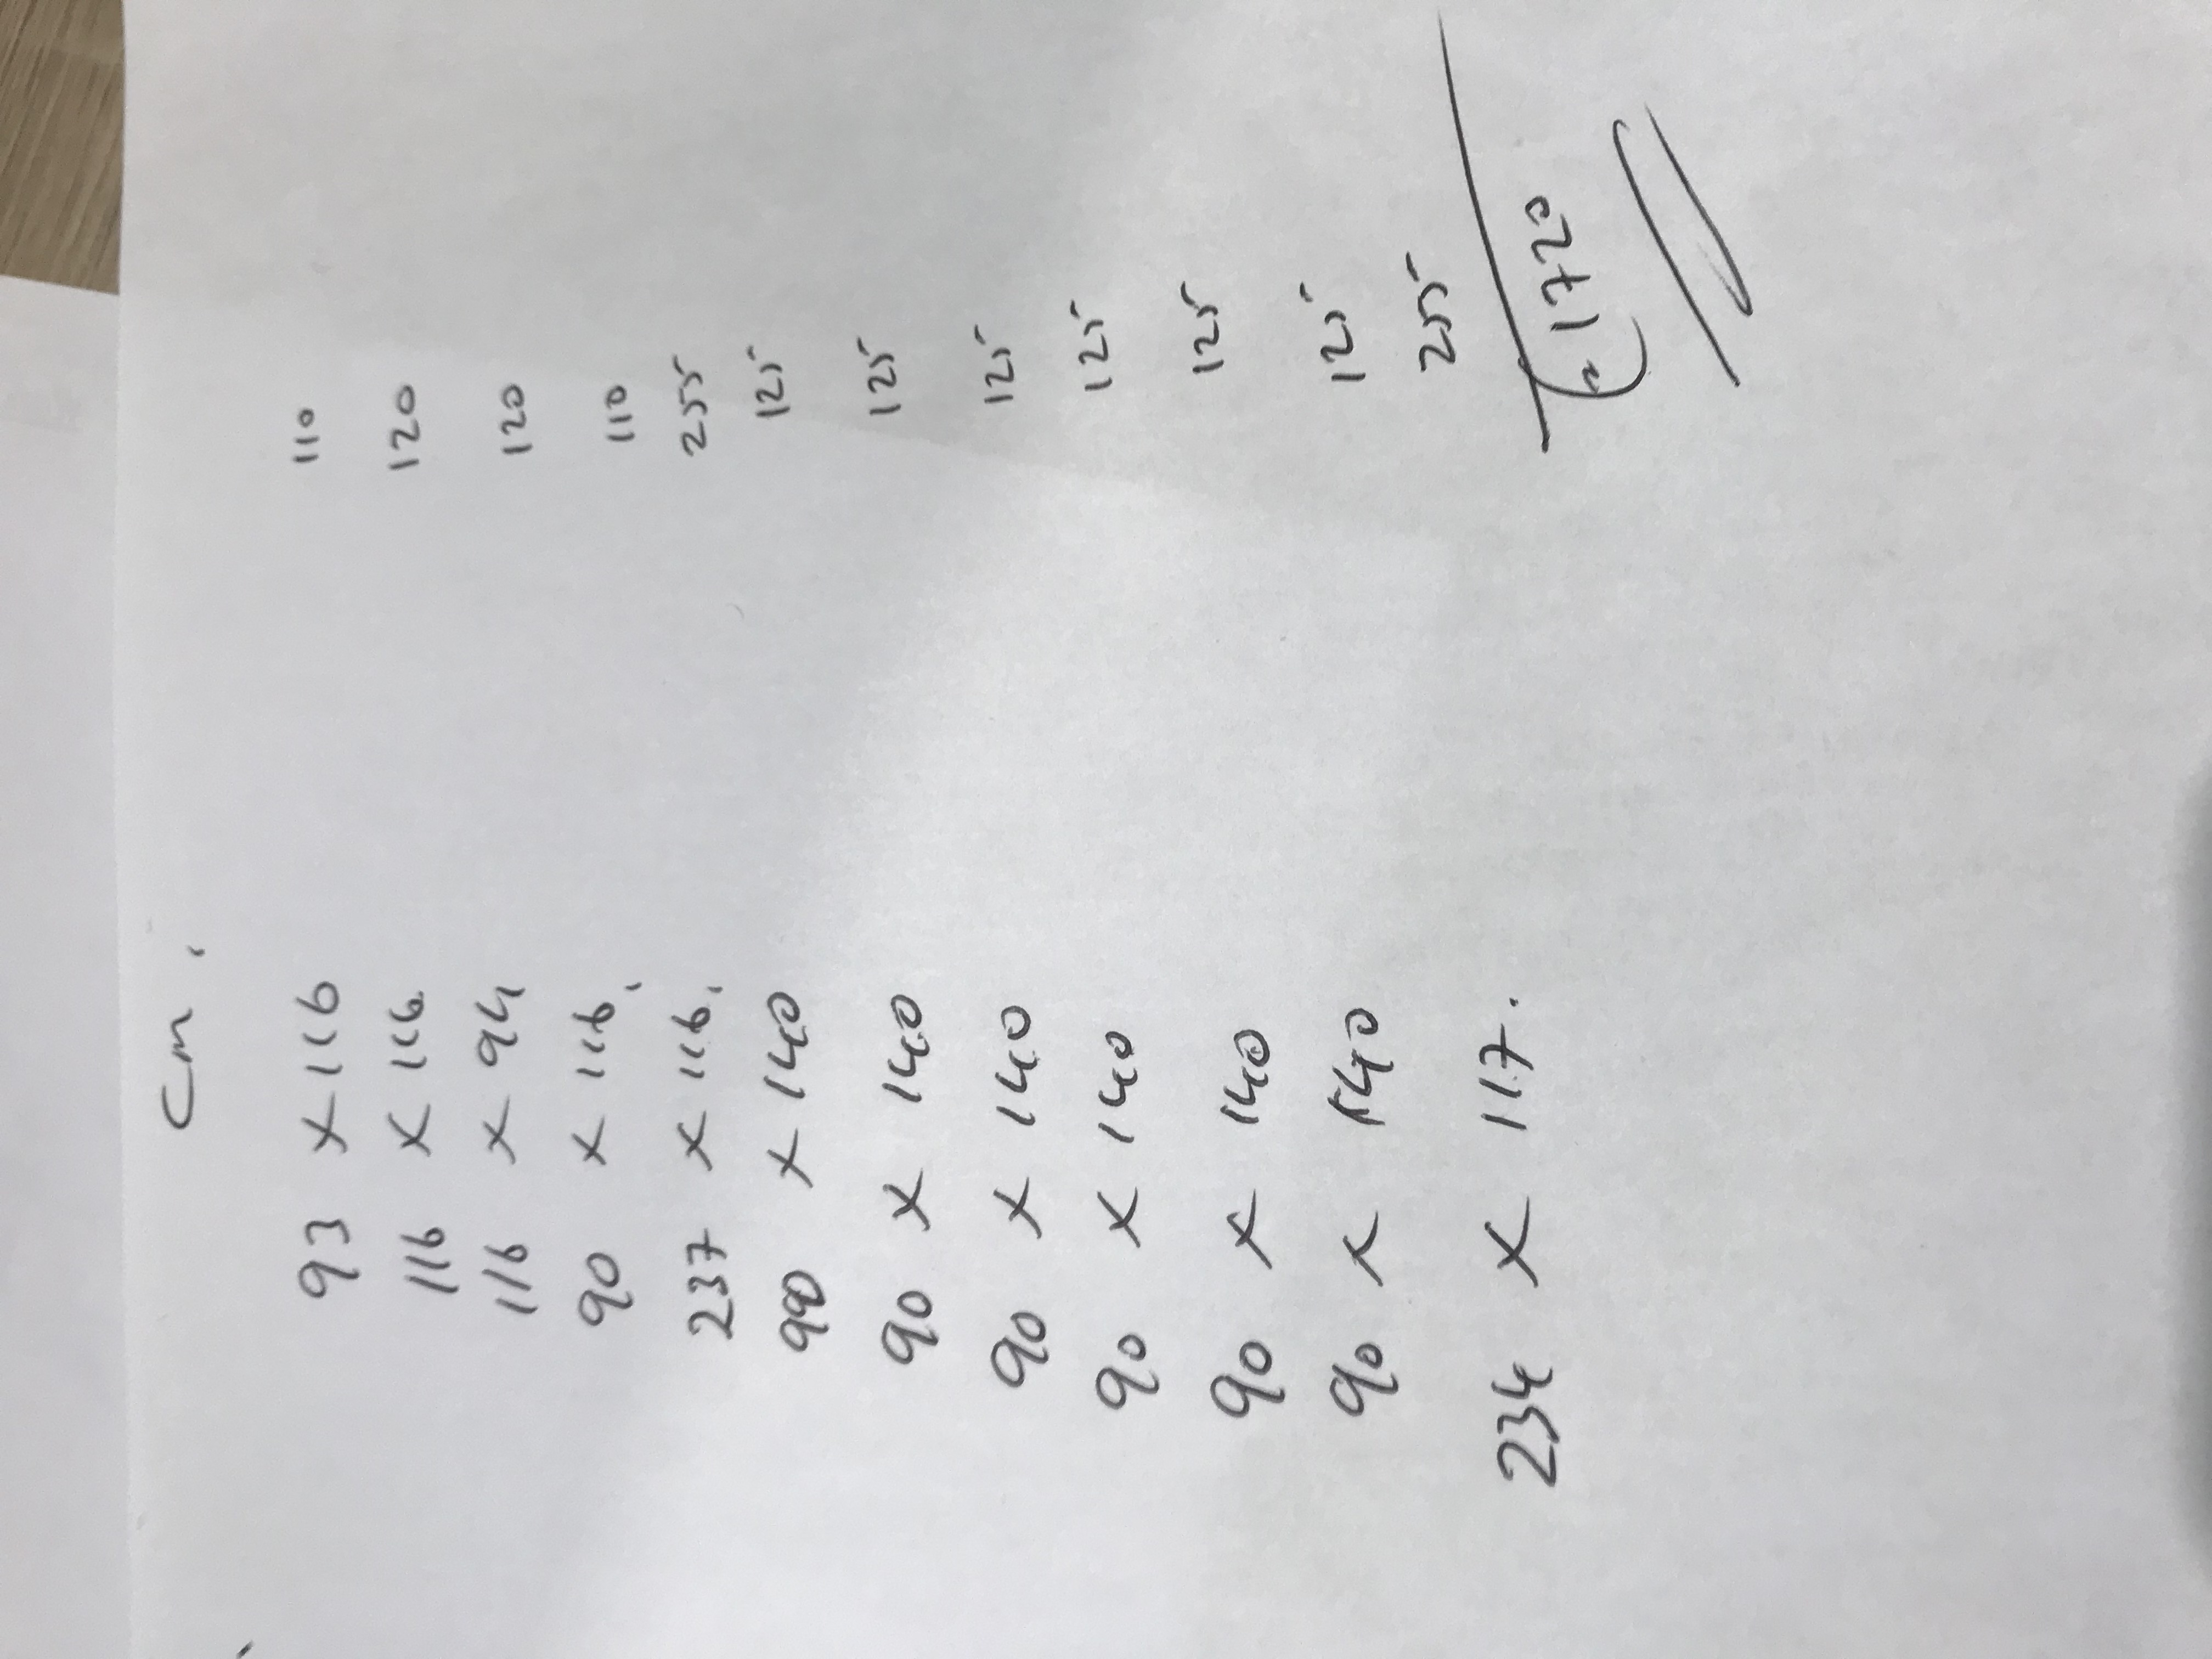 cm.
93 x 116 110
116 x 116 120
116 x 94 120
90 x 116. 110
237 x 116. 255
90 x 140 125
90 x 140 125
90 x 140 125
90 x 140 125
90 x 140 125
90 x 140 125
234 x 117. 255
1720